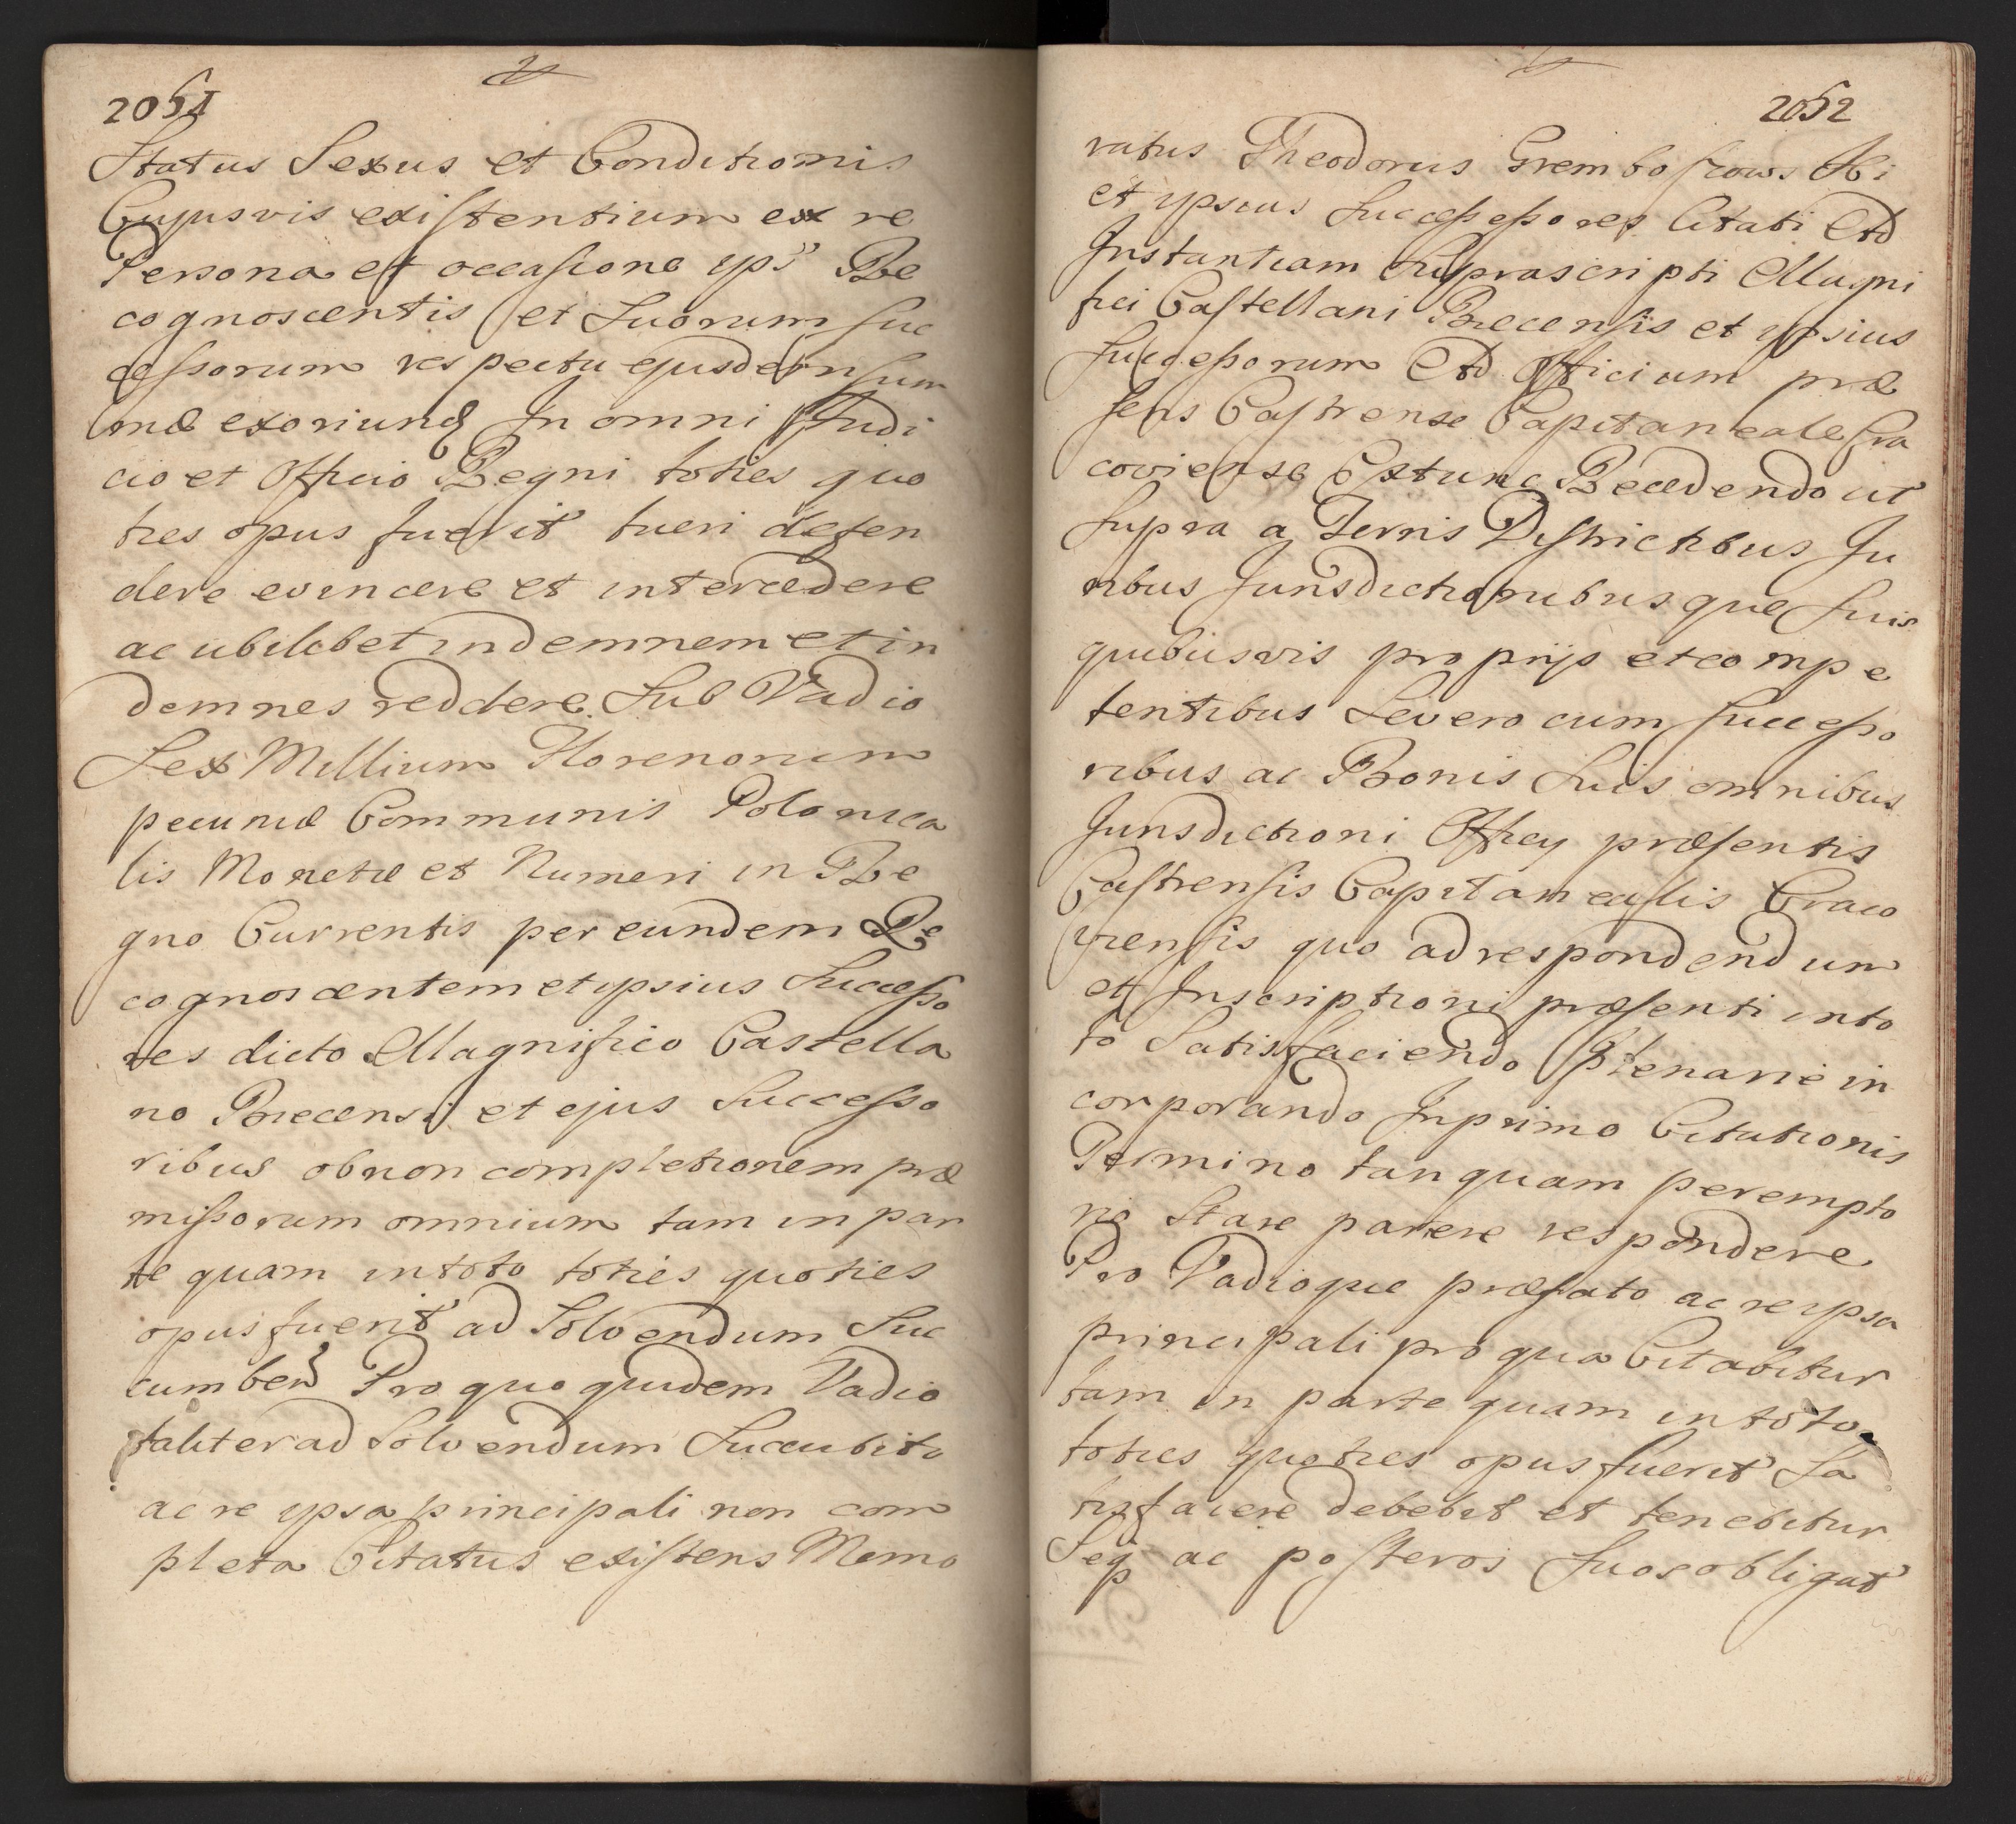 2051
Status Sexus et Conditionis
Cujusvis existentium ex re
Persona et occasione ips⁹ Re
cognoscentis et Suorum Suc
cessorum respectu ejusdem Sum
mæ exoriunđ In omni Judi
cio et Officio Regni toties quo
ties opus fuerit tueri defen
dere evincere et intercedere
ac ubilibet indemnem et in
demnes reddere Sub Vadio
Sex Millium Florenorum
pecuniæ Communis Polonica
lis Monetæ et Numeri in Re
gno Currentis per eundem Re
cognoscentem et ipsius Successo
res dicto Magnifico Castella
no Biecensi et ejus Successo
ribus ob non completionem præ
missorum omnium tam in par
te quam in toto toties quoties
opus fuerit ad Solvendum Suc
cumbenđ Pro quo quidem Vadio
taliter ad Solvendum Succubito
ac re ipsa principali non com
pleta Citatus existens Memo
2052
ratus Theodorus Grembossows Ski
et ipsius Successores Citati Ad
Instantiam Suprascripti Magni
fici Castellani Biecensis et ipsius
Successorum Ad Officium præ
sens Castrense Capitaneale Cra
coviense Extunc Recedendo ut
Supra a Terris Districtibus Ju
ribus Jurisdictionibusque Suis
quibusvis proprijs et compe
tentibus Se vero cum Successo
ribus ac Bonis Suis omnibus
Jurisdictioni Officy præsentis
Castrensis Capitanealis Craco
viensis quo ad respondendum
et Inscriptioni præsenti in to
to Satisfaciendo Plenarie in
corporando In primo Citationis
Termino tanquam perempto
rio Stare parere respondere
Pro Vadioque præfato ac re ipsa
principali pro qua Citabitur
tam in parte quam in toto
toties quoties opus fuerit Sa
tisfacere debebit et tenebitur
Seq ac posteros Suos obligat